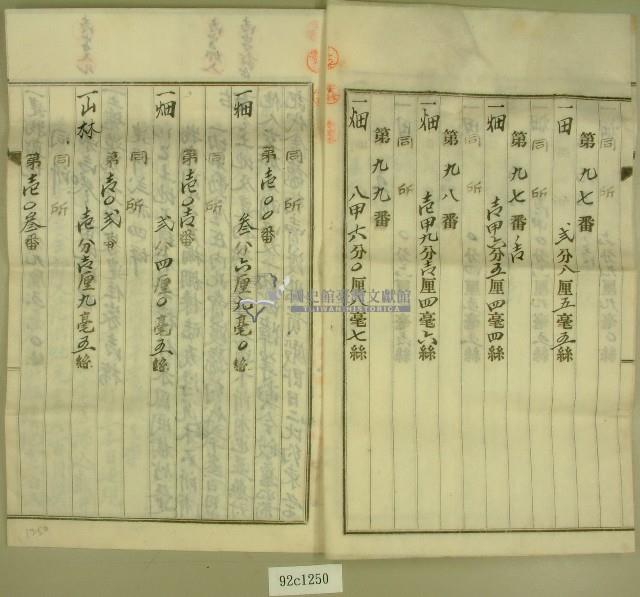 第九七番
一田　貳分八厘五毫五絲
同所
第九七番ノ壱
一畑　壱甲六分五厘四毫四絲
同所
第九八番
一畑　壱甲九分壱厘四毫六絲
同所
第九九番
一畑　八甲六分〇厘八毫七絲
同所
第壱〇〇番
一畑　叁分六厘九毫〇絲
同所
第壱〇壱番
一畑　貳分四厘〇毫五絲
同所
第壱〇貳番
一山林　壱分壱厘九毫五絲
同所
第壱〇叁番
國史館臺灣文獻館
TAIWAN HISTORICA
1250
92c1250